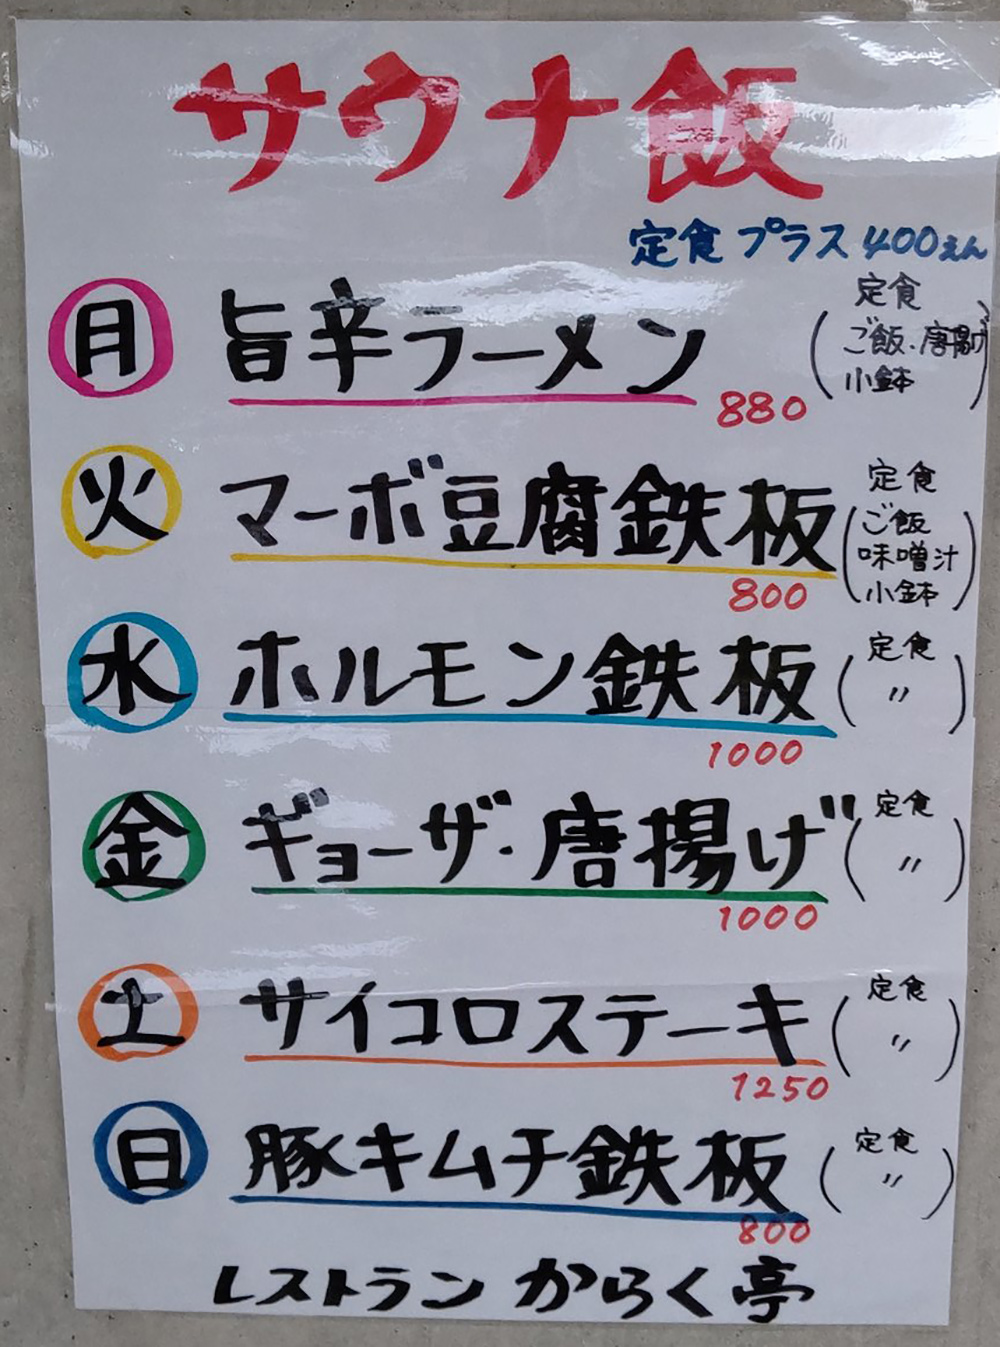 サウナ飯
定食プラス400えん
月 旨辛ラーメン 880
定食
(ご飯・唐揚げ
小鉢)
火 マーボ豆腐鉄板 800
定食
(ご飯
味噌汁
小鉢)
水 ホルモン鉄板 1000
定食
(〃)
金 ギョーザ・唐揚げ 1000
定食
(〃)
土 サイコロステーキ 1250
定食
(〃)
日 豚キムチ鉄板 800
定食
(〃)
レストラン からく亭